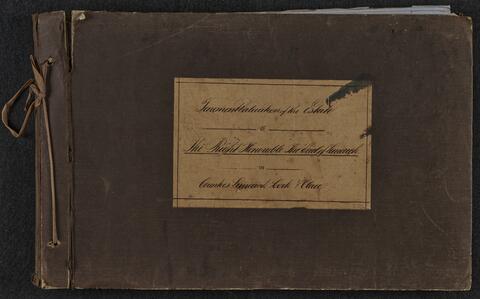 Tenement Valuation of the Estate
of
The Right Honourable The Earl of Limerick
in
Counties Limerick Cork & Clare